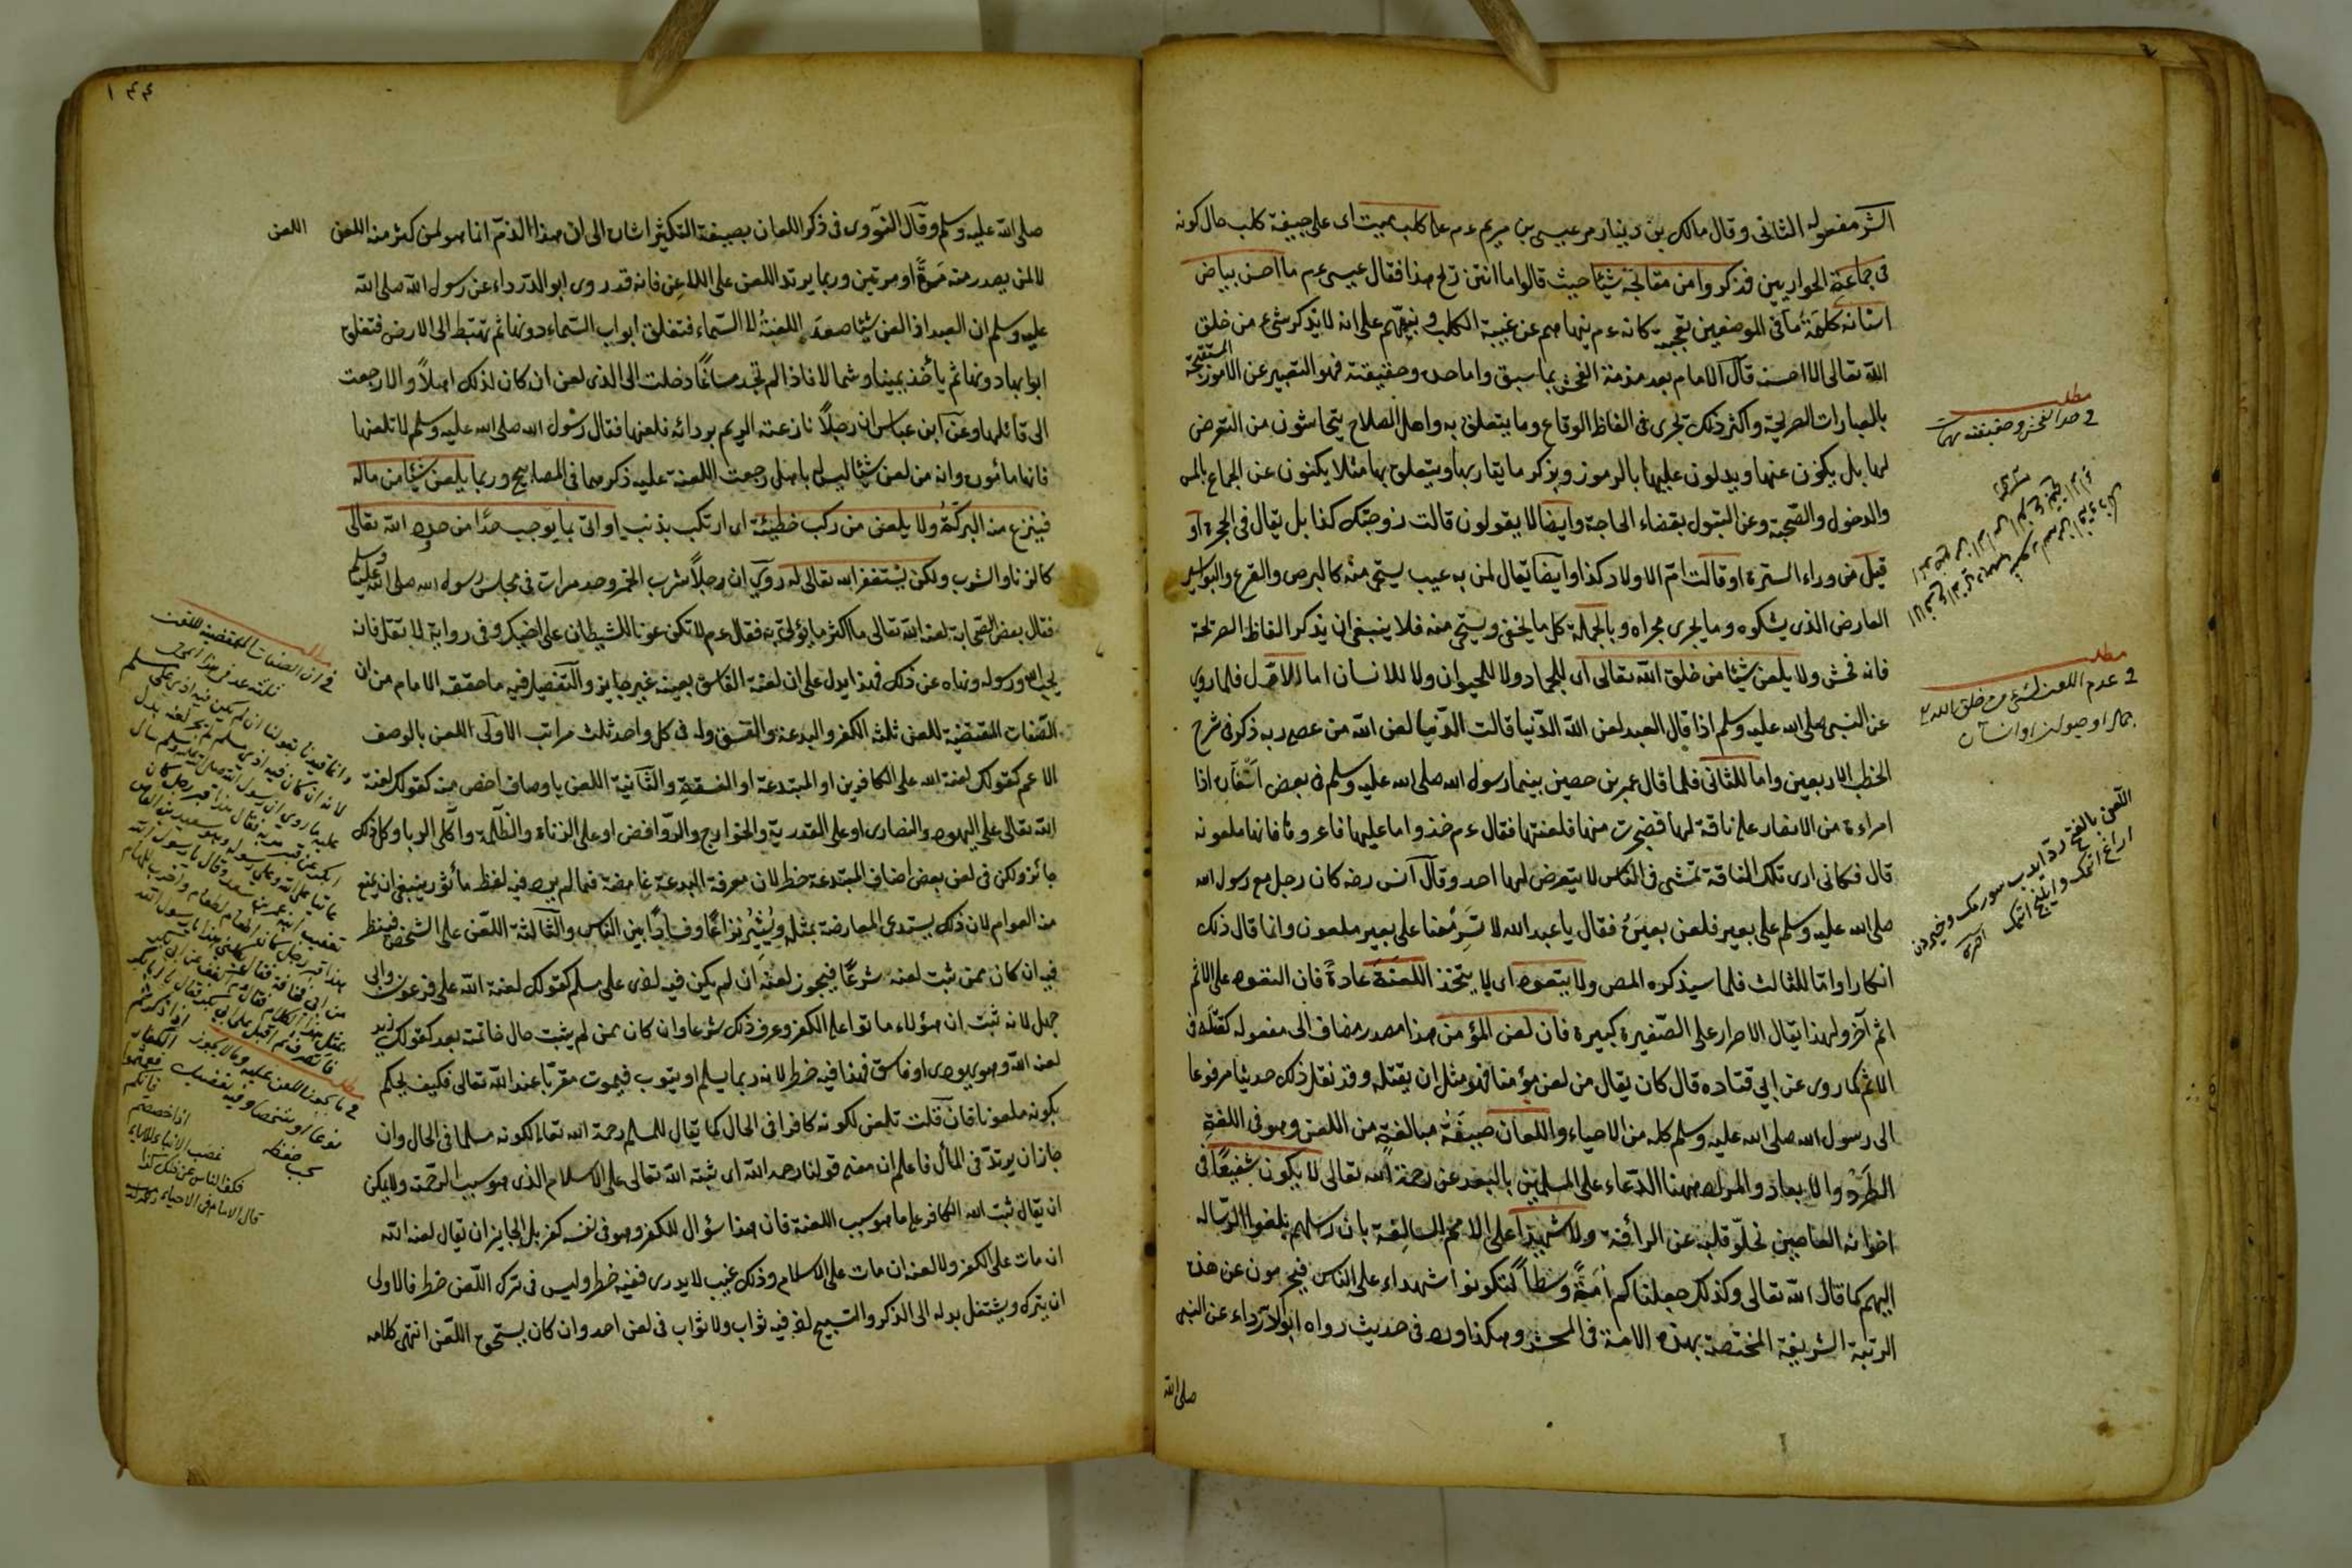 الشر مفعوله الثانى وقال مالك بن دينار مر عيسى بن مريم ءم على كلب ميت اى على جيفة كلب حال كونه
فى جماعة الحواريين فذكروا من مقالته شيئا حيث قالوا ما انتن ريح هذا فقال عيسى ءم ما احسن بياض
اسنانه كلمة ما فى الموضعين تعجبية كانه ءم ينهاهم عن غيبة الكلب وينبههم على انه لا يذكر شئ من خلق
الله تعالى الا احسنه قال الامام بعد مذمة الفحش بما سبق واما حده وحقيقته فهو التعبير عن الامور المستقبحة
بالعبارات الصريحة واكثر ذلك تجرى فى الفاظ الوقاع وما يتعلق به واهل الصلاح يتحاشون من التعرض
لها بل يكنون عنها ويدلون عليها بالرموز ويذكر ما يقاربها ويتعلق بها مثلا يكنون عن الجماع بالمس
والدخول والصحبة وعن التبول بقضاء الحاجة وايضا لا يقولون قالت زوجتك كذا بل يقال فى الحجرة او
قيل من وراء السترة او قالت ام الاولاد كذا وايضا يقال لمن به عيب يستحى منه كالبرص والقرع والبواسير
العارض الذى يشكوه وما يجرى مجراه وبالجملة كل ما يخفى ويستحى منه فلا ينبغى ان يذكر الفاظ الصريحة
فانه فحش ولا يلعن شيئا من خلق الله تعالى اى للجماد ولا للحيوان ولا للانسان اما الاول فلما روي
عن النبى صلى الله عليه وسلم اذا قال العبد لعن الله الدنيا قالت الدنيا لعن الله من عصى ربه ذكر فى شرح
الخطب الاربعين واما للثانى فلما قال عمر بن حصين بينما رسول الله صلى الله عليه وسلم فى بعض اسفاره اذا
امراءة من الانصار على ناقة لها فضجرت منها فلعنتها فقال ءم خذوا ما عليها فاعروها فانها ملعونه
قال فكانى ارى تلك الناقة تمشى فى الناس لا يتعرض لها احد وقال انس رضه كان رجل مع رسول الله
صلى الله عليه وسلم على بعير فلعن بعيره فقال يا عبد الله لا تسر معنا على بعير ملعون وانما قال ذلك
انكارا واما للثالث فلما سيذكره المص ولا يتعود اى لا يتخذ اللعنة عادة فان التعود على الاثم
اثم آخر ولهذا يقال الاصرار على الصغيرة كبيرة فان لعن المؤمن هذا مصدر مضاف الى مفعوله كقتله فى
الاثم كما روى عن ابي قتاده قال كان يقال من لعن مؤمنا فهو مثل ان يقتله وقد نقل ذلك حديثا مرفوعا
الى رسول الله صلى الله عليه وسلم كله من الاحياء واللعان صيغة مبالغة من اللعن وهو فى اللغة
الطرد والابعاد والمراد ههنا الدعاء على المسلمين بالبعد عن رحمة الله تعالى لا يكون شفيعا فى
اخوانه العاصين لخلو قلبه عن الرأفة ولا شهيدا على الامم السالفة بان رسلهم بلغوا الرساله
اليهم كما قال الله تعالى وكذلك جعلناكم امة وسطا لتكونوا شهداء على الناس فيحرمون عن هذه
الرتبة الشريفة المختصة بهذه الامة فى المحشر وهكذا ورد فى حديث رواه ابو الدرداء عن النبى
صلى الله
مطلب
فى حد الفحش وحقيقته مهمات
مطلب
فى عدم اللعن لشئ من خلق الله
جمادا او حيوانا او انسانا
١٤٤
صلى الله عليه وسلم وقال النووى فى ذكر اللعان بصيغة التكثير اشارة الى ان هذا الذم انما هو لمن كثر منه اللعن
اللعن
لا لمن يصدر منه مرة او مرتين وربما يرتد اللعن على اللاعن فانه قد روى ابو الدرداء عن رسول الله صلى الله
عليه وسلم ان العبد اذا لعن شيئا صعدت اللعنة الى السماء فتغلق ابواب السماء دونها ثم تهبط الى الارض فتغلق
ابوابها دونها ثم يأخذ يمينا وشمالا فاذا لم تجد مساغا دخلت الى الذى لعن ان كان لذلك اهلا والا رجعت
الى قائلها وعن ابن عباس ان رجلا نازعته الريح بردائه فلعنها فقال رسول الله صلى الله عليه وسلم لا تلعنها
فانها مامورة وانه من لعن شيئا ليس له باهل رجعت اللعنة عليه ذكرهما فى المصابيح وربما يلعن شيئا من ماله
فينزع منه البركة ولا يلعن من ركب خطيئة اى ارتكب بذنب او اتى بما يوجب حدا من حدود الله تعالى
كالزنا والشرب ولكن يستغفر الله تعالى له روي ان رجلا شرب الخمر وحد مرات فى مجلس رسول الله صلى الله عليه وسلم
فقال بعض الصحابة لعنه الله تعالى ما اكثر ما يؤتى به فقال ءم لا تكن عونا للشيطان على اخيك وفى رواية لا تقل فانه
يحب الله ورسوله ونهاه عن ذلك فهذا يدل على ان لعنة الفاسق بعينه غير جايز والتفصيل فيه ما حققه الامام من ان
الصفات المقتضية للعن ثلثة الكفر والبدعة والفسق وله فى كل واحد ثلث مراتب الاولى اللعن بالوصف
الاعم كقولك لعنة الله على الكافرين او المبتدعة او الفسقة والثانية اللعن باوصاف اخص منه كقولك لعنة
الله تعالى على اليهود والنصارى او على القدرية والخوارج والروافض او على الزناة والظلمة وآكلى الربا وكل ذلك
جائز ولكن فى لعن بعض اصناف المبتدعة خطر لان معرفة البدعة غامضة فما لم يرد فيه لفظ مأثور ينبغى ان يمنع
منه العوام لان ذلك يستدعى المعارضة بمثله ويثير نزاعا وفسادا بين الناس والثالثة اللعن على الشخص فينظر
فيه ان كان ممن ثبت لعنه شرعا فيجوز لعنه ان لم يكن فيه اذى على مسلم كقولك لعنة الله على فرعون وابى
جهل لانه ثبت ان هؤلاء ماتوا على الكفر وعرف ذلك شرعا وان كان ممن لم يثبت حال خاتمته بعد كقولك زيد
لعنه الله وهو يهودى او فاسق فهذا فيه خطر لانه ربما يسلم او يتوب فيموت مقربا عند الله تعالى فكيف يحكم
بكونه ملعونا فان قلت تلعن لكونه كافرا فى الحال كما يقال للمسلم رحمه الله تعالى لكونه مسلما فى الحال وان
جاز ان يرتد فى المأل فاعلم ان معنى قولنا رحمه الله اى ثبته الله تعالى على الاسلام الذى هو سبب الرحمة ولا يمكن
ان يقال ثبت الله الكافر على ما هو سبب اللعنة فان هذا سؤال للكفر وهو فى نفسه كفر بل الجايز ان يقال لعنه الله
ان مات على الكفر ولا لعنه ان مات على الاسلام وذلك غيب لا يدرى ففيه خطر وليس فى ترك اللعن خطر فالاولى
ان يترك ويشتغل بدله الى الذكر والتسبيح اذ فيه ثواب ولا ثواب فى لعن احد وان كان يستحق اللعن انتهى كلامه
مطلب
فى ان الصفات المقتضية للعن
مطلب
فى ما يجوز اللعن عليه وما لا يجوز